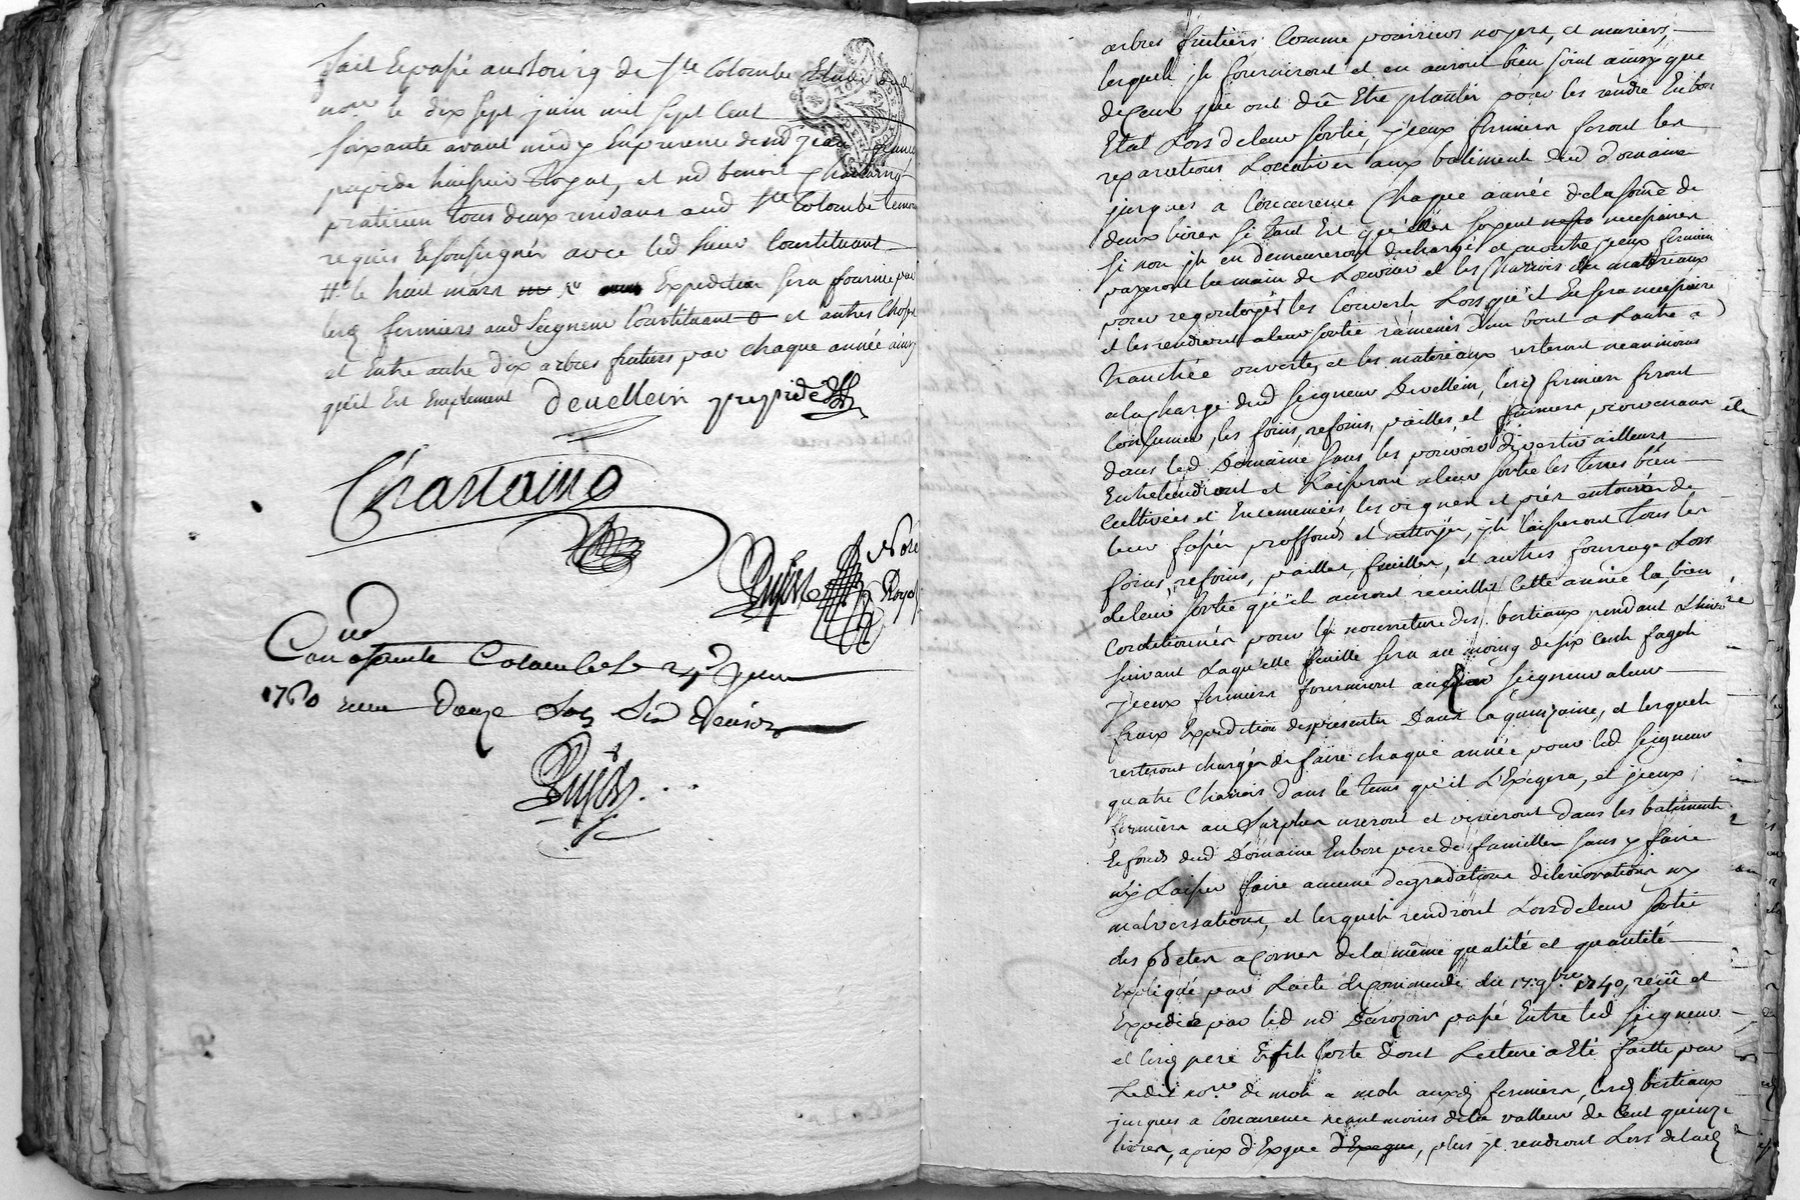 fait & passé au bourg de Ste Colombe Etude dud
nore le dix sept juin mil sept cent
soixante avant midy En presence de md Jean
prepide huissier Royal, et md benoit Chartaing
praticien tous deux residans aud Ste Colombe temoin
requis & soussignés avec led sieur Constituant
le haut mars Expedition sera fournie par
lesd fermiers aud Seigneur Constituant et autres Choses
et Entre autre dix arbres fruitiers par chaque année ainsy
qu'il Est Emplement devellein prepide
Chartaing
Pujos Nore
Royal
Conlé a Sainte Colombe le 24 Juin
1760 reçu douze sols six deniers
Pujos
arbres fruitiers Comme poiriers noyers, et muriers,
lesquels ils fourniront et en auront bien soint ainsy que
de ceux qui ont dû Etre plantés pour les rendre En bon
Etat Lors de leur sortie, yceux fermiers feront les
reparations Locatives aux batiment dud domaine
jusques a Concurence Chaque année de la some de
deux livres si tant Est qu'elles soyent necessaires
si non ils en demeureront dechargé et en outre yceux fermiers
payeront la main de Louvrier et les Charrois des materiaux
pour regoutoyer les Couverts Lors qu'il En sera necessaire
et les rendront a leur sortie ramenés d'un bout a Lautre a
tranchée ouverte, et les materiaux resteront neanmoins
a la charge dud Seigneur Devellein, lesd fermiers feront
Consumer, les foins, refoins, pailles, et fumiers provenans
dans led Domaine sans les pouvoir divertir ailleurs,
Entretiendront et Laisseront a leur sortie les terres bien
Cultivées et Encemencées, les vignes et près entourés de
leur fossés proffonds et nettoyés, ils laisseront tous les
foins, refoins, pailles, feuilles, et autres fourrage Lors
de leur sortie qu'ils auront recuillis Cette année la, bien
Conditionnés pour la nourriture des bestiaux pendant Lhiver
suivant Laquelle feuille sera au moing de six cent fagots
yceux fermiers fourniront aud Seigneur a leur
fraix Expedition des presentes Dans la quinzaine, et lesquels
resteront chargés de faire chaque année pour led Seigneur
quatre Charrois dans le tems qu'il L'Exigera, et yceux
fermiers au Surplus useront et viveront dans les batiments
& fonds dud Domaine En bon pere de familles sans y faire
ny Laisser faire aucune degradations deteriorations ny
malversations, et lesquels rendront Lors de leur sortie
des betes a Cornes de la même qualité et quantité
Expliqué par Lacte de Commande du 17 9bre 1740, reçû et
Expedié par led md Darojoin passé Entre led Seigneur
et lesd pere & fils forte dont Lecture a Eté faitte par
Ledit nore de mots a mots auxd fermiers, lesd bestiaux
jusques a Concurence neantmoins de la valleur de Cent quinze
livres, a prix d'Exgue d'Exegue, plus ils rendront Lors de lad